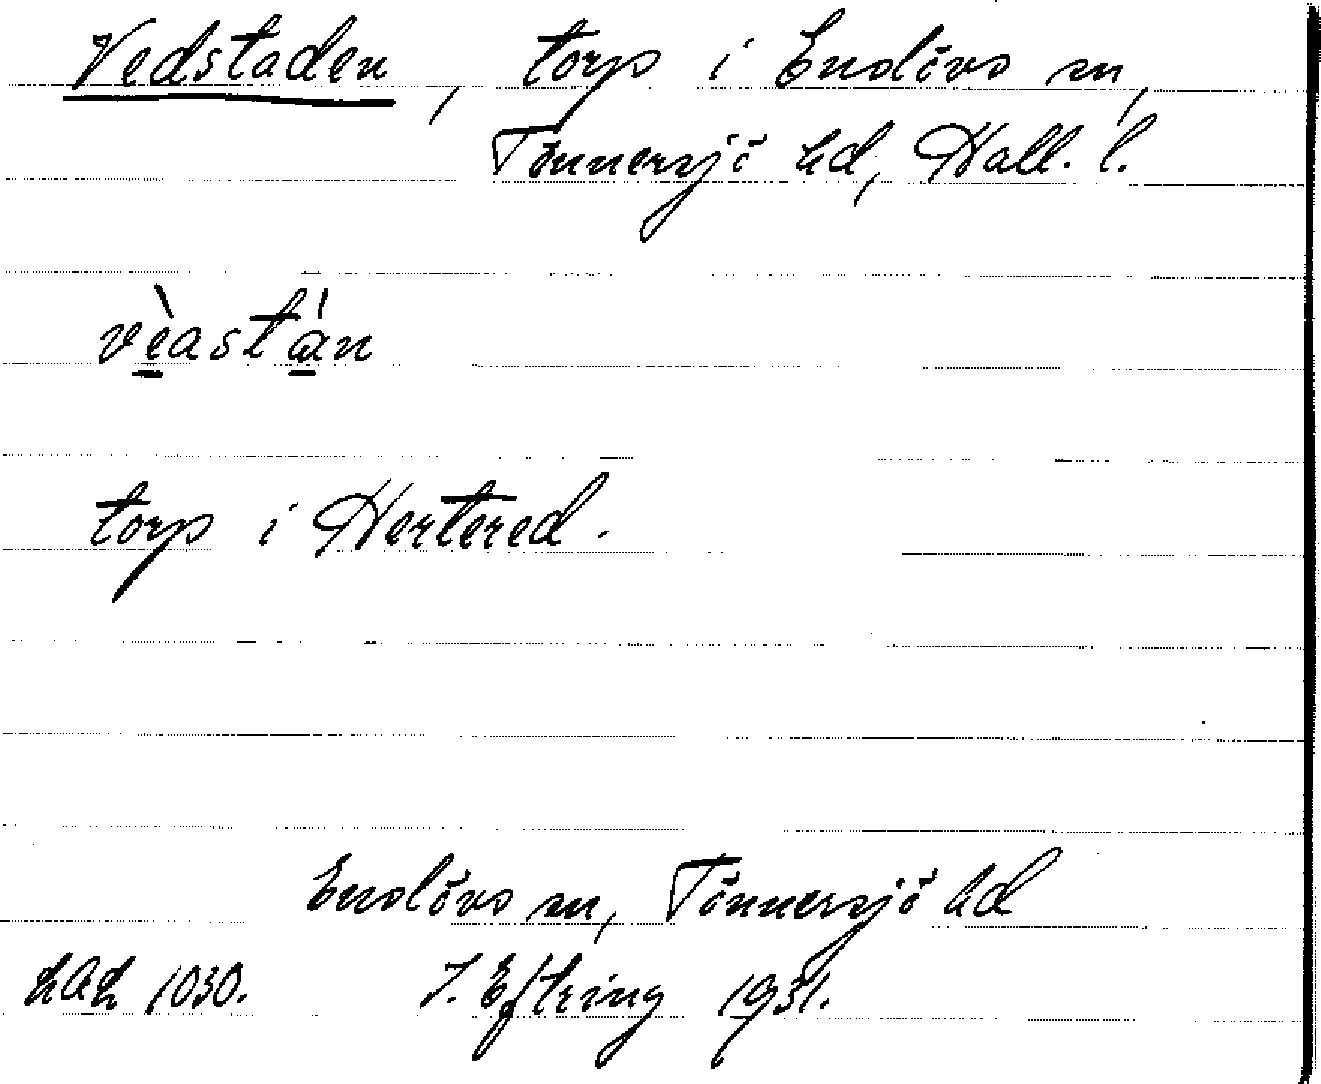 Vedstaden, torp i Enslövs sn,
Tönnersjö hd, Hall. l.
vèastán
torp i Hertered.
Enslövs sn, Tönnersjö hd
LAL 1030. J. Eftring 1931.